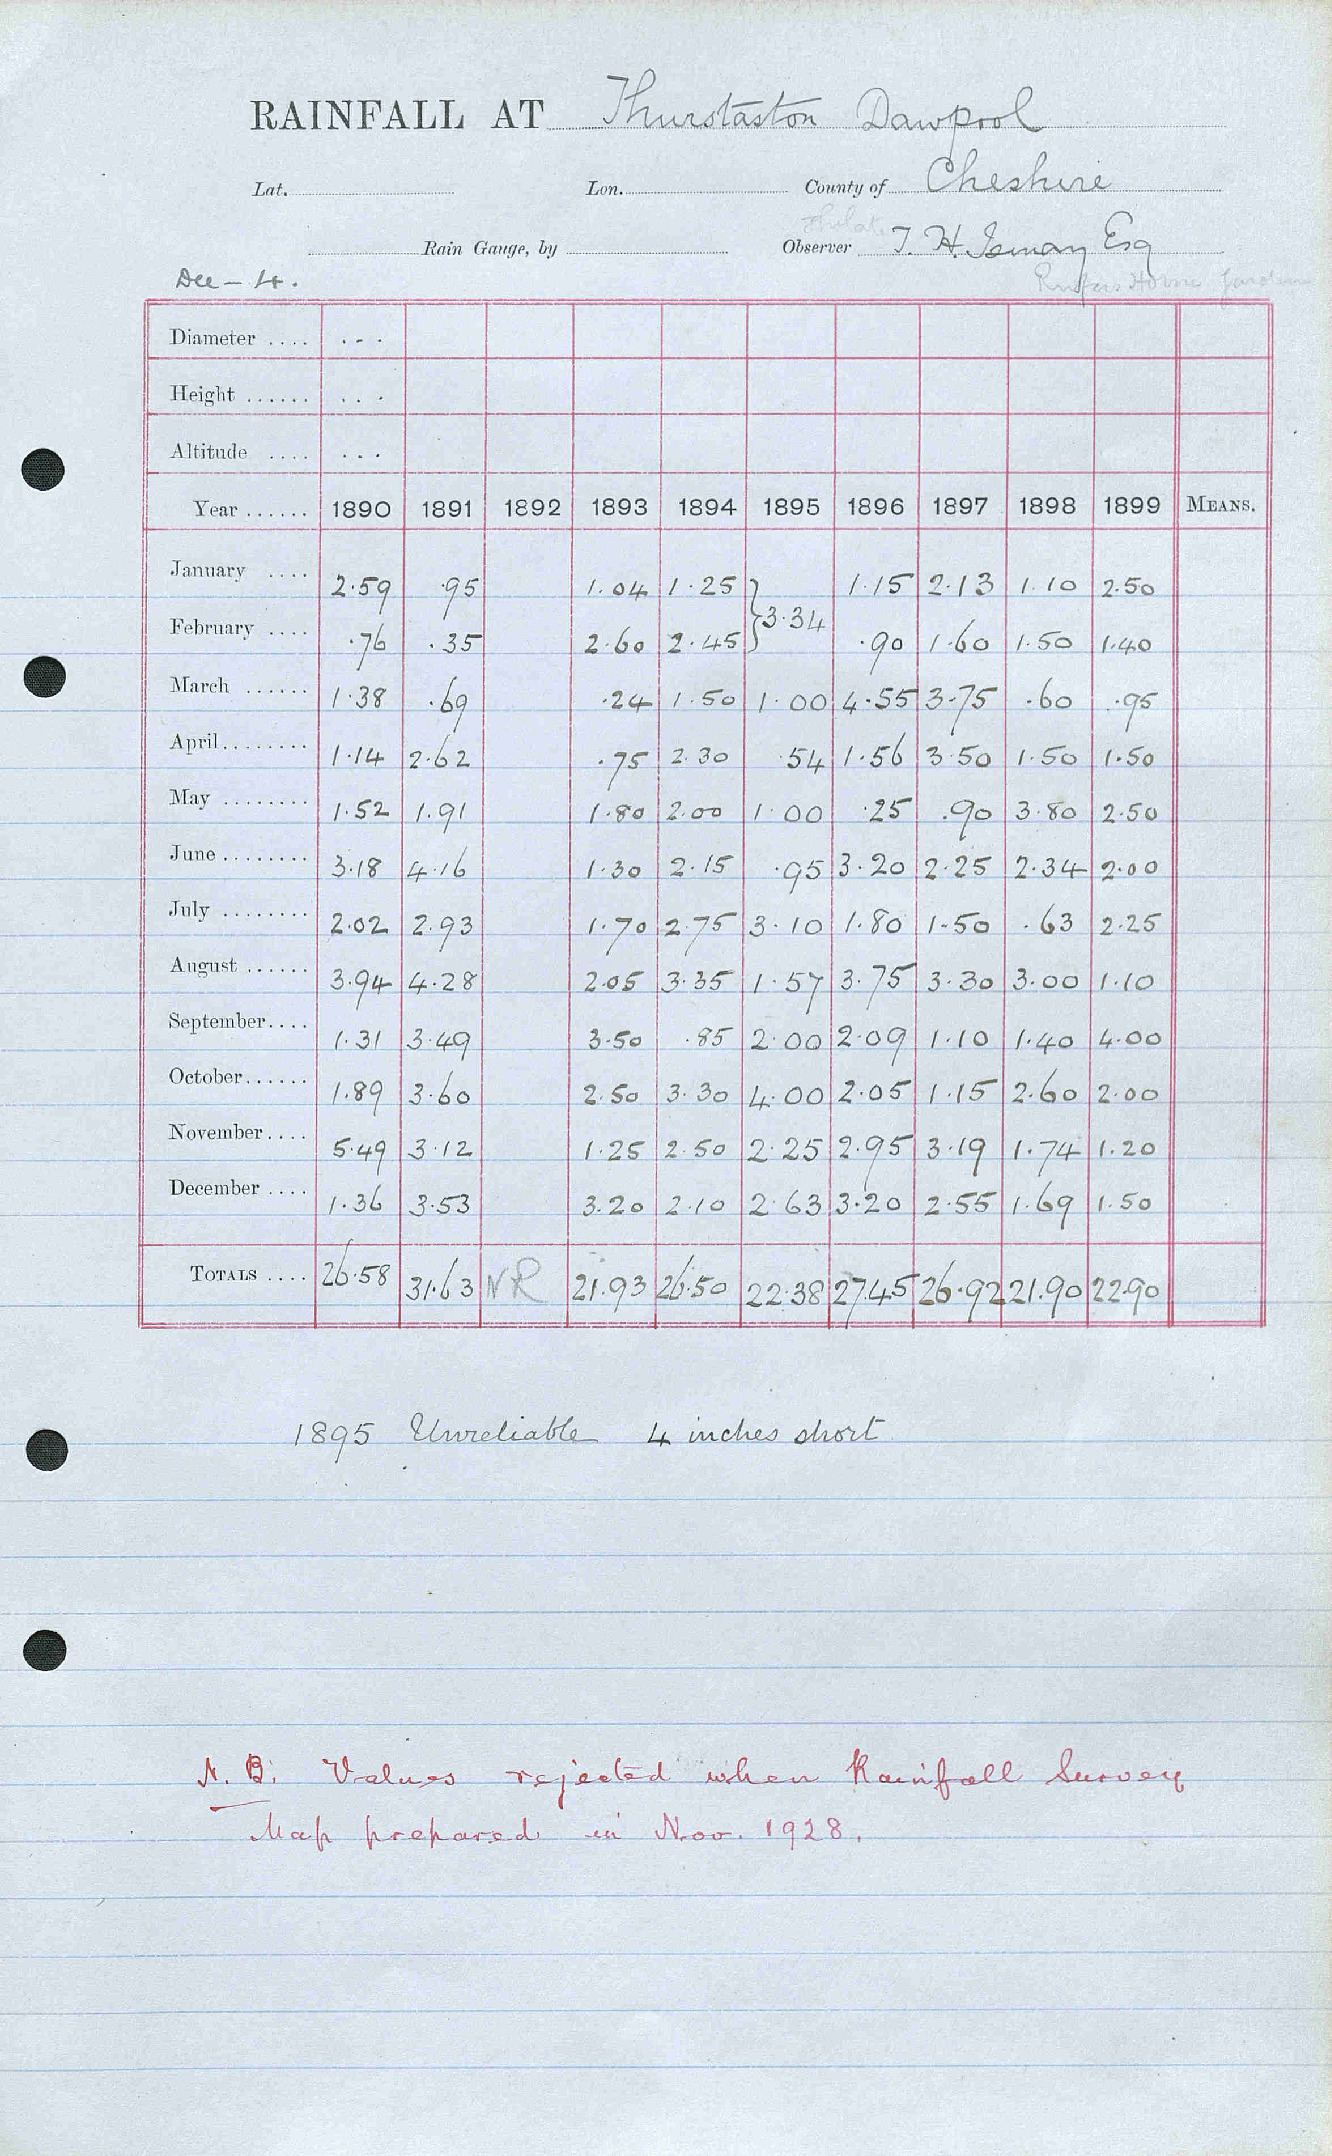 RAINFALL AT Thurstaston Dawpool
Lat. Lon. County of Cheshire
Rain Gauge, by Observer T. H. Ismay Esq
Dec – 4.
Diameter .... ...
Height ...... ...
Altitude .... ...
Year ...... 1890 1891 1892 1893 1894 1895 1896 1897 1898 1899 MEANS.
January .... 2.59 .95 1.04 1.25 1.15 2.13 1.10 2.50
3.34
February .... .76 .35 2.60 2.45 .90 1.60 1.50 1.40
March ...... 1.38 .69 .24 1.50 1.00 4.55 3.75 .60 .95
April........ 1.14 2.62 .75 2.30 .54 1.56 3.50 1.50 1.50
May ........ 1.52 1.91 1.80 2.00 1.00 .25 .90 3.80 2.50
June ........ 3.18 4.16 1.30 2.15 .95 3.20 2.25 2.34 2.00
July ........ 2.02 2.93 1.70 2.75 3.10 1.80 1.50 .63 2.25
August ...... 3.94 4.28 2.05 3.35 1.57 3.75 3.30 3.00 1.10
September.... 1.31 3.49 3.50 .85 2.00 2.09 1.10 1.40 4.00
October...... 1.89 3.60 2.50 3.30 4.00 2.05 1.15 2.60 2.00
November.... 5.49 3.12 1.25 2.50 2.25 2.95 3.19 1.74 1.20
December .... 1.36 3.53 3.20 2.10 2.63 3.20 2.55 1.69 1.50
TOTALS .... 26.58 31.63 NR 21.93 26.50 22.38 27.45 26.92 21.90 22.90
1895 Unreliable 4 inches short
N.B. Values rejected when Rainfall Survey
Map prepared in Nov. 1928.